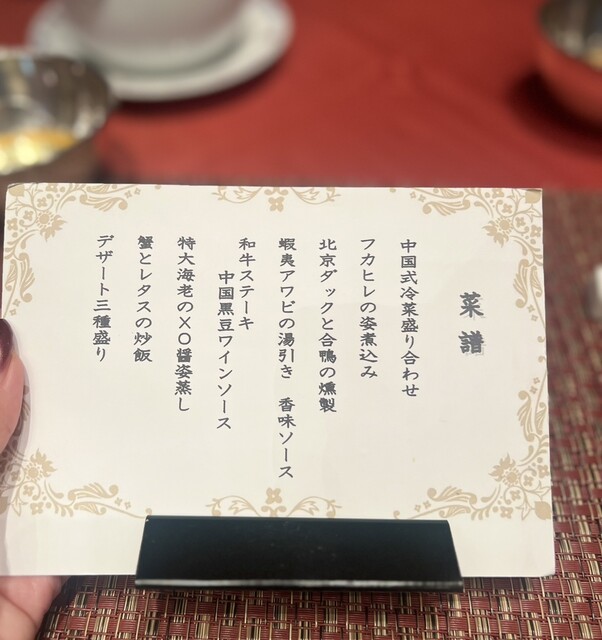 菜譜
中国式冷菜盛り合わせ
フカヒレの姿煮込み
北京ダックと合鴨の燻製
蝦夷アワビの湯引き　香味ソース
和牛ステーキ
中国黒豆ワインソース
特大海老のXO醤姿蒸し
蟹とレタスの炒飯
デザート三種盛り